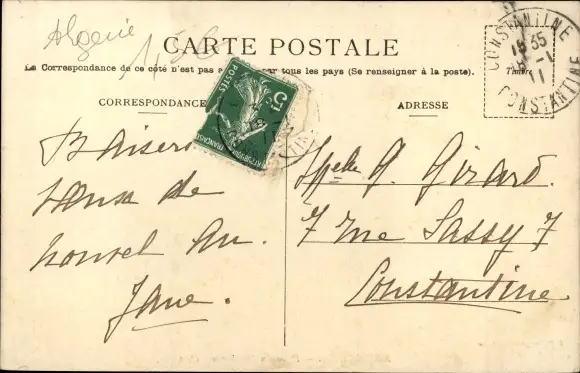 Algerie
CARTE POSTALE
La Correspondance de ce côté n'est pas a par tous les pays (Se renseigner à la poste).
CORRESPONDANCE
Baisers
de
nouvel An.
Jane.
POSTES
5c
RÉPUBLIQUE FRANÇAISE
ADRESSE
Timbre
CONSTANTINE
18 35
-1
11
CONSTANTINE
Melle G. Girard.
7 rue Sassy 7
Constantine